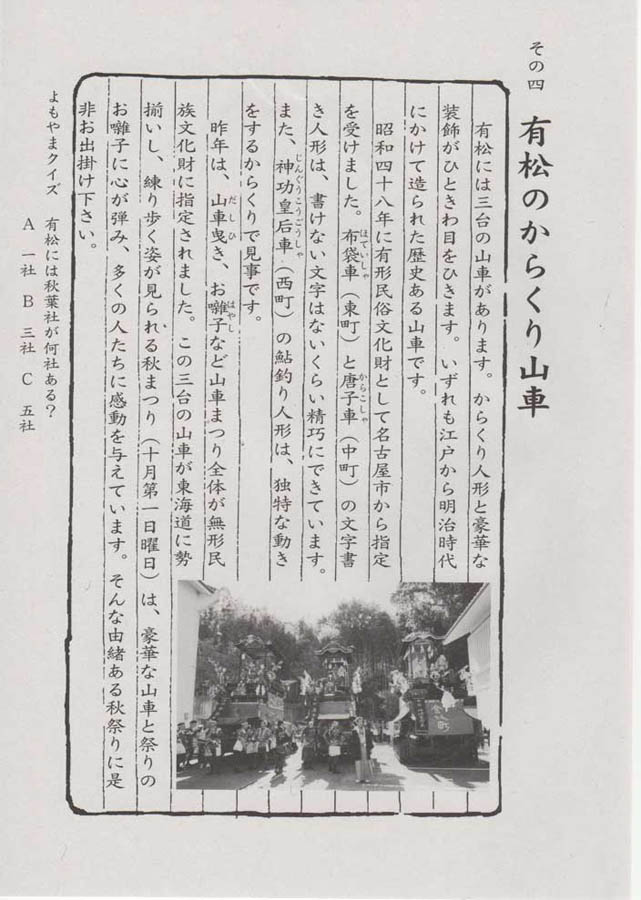 その四
有松のからくり山車
有松には三台の山車があります。からくり人形と豪華な
装飾がひときわ目をひきます。いずれも江戸から明治時代
にかけて造られた歴史ある山車です。
昭和四十八年に有形民俗文化財として名古屋市から指定
を受けました。布袋車（東町）と唐子車（中町）の文字書
き人形は、書けない文字はないくらい精巧にできています。
また、神功皇后車（西町）の鮎釣り人形は、独特な動き
をするからくりで見事です。
昨年は、山車曳き、お囃子など山車まつり全体が無形民
族文化財に指定されました。この三台の山車が東海道に勢
揃いし、練り歩く姿が見られる秋まつり（十月第一日曜日）は、豪華な山車と祭りの
お囃子に心が弾み、多くの人たちに感動を与えています。そんな由緒ある秋祭りに是
非お出掛け下さい。
よもやまクイズ　有松には秋葉社が何社ある？
A　一社　B　三社　C　五社